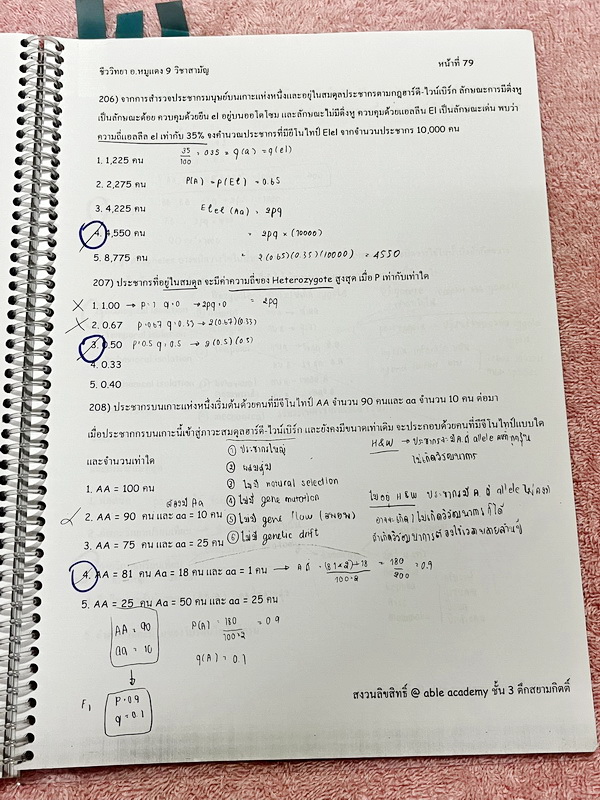 ชีววิทยา อ.หมูแดง 9 วิชาสามัญ หน้าที่ 79
206) จากการสำรวจประชากรมนุษย์บนเกาะแห่งหนึ่งและอยู่ในสมดุลประชากรตามกฎฮาร์ดี-ไวน์เบิร์ก ลักษณะการมีติ่งหู
เป็นลักษณะด้อย ควบคุมด้วยยีน el อยู่บนออโตโซม และลักษณะไม่มีติ่งหู ควบคุมด้วยแอลลีน El เป็นลักษณะเด่น พบว่า
ความถี่แอลลีล el เท่ากับ 35% จงคำนวณประชากรที่มียีโนไทป์ Elel จากจำนวนประชากร 10,000 คน
1. 1,225 คน 35/100 = 0.35 = q(a) = q(el)
2. 2,275 คน P(A) = P(El) = 0.65
3. 4,225 คน Elel (Aa) = 2pq
4. 4,550 คน = 2pq × (10000)
5. 8,775 คน = 2(0.65)(0.35)(10000) = 4550
207) ประชากรที่อยู่ในสมดุล จะมีค่าความถี่ของ Heterozygote สูงสุด เมื่อ P เท่ากับเท่าใด
1. 1.00 → p=1 q=0 → 2pq=0 = 2pq
2. 0.67 p=0.67 q=0.33 → 2(0.67)(0.33)
3. 0.50 p=0.5 q=0.5 → 2(0.5)(0.5)
4. 0.33
5. 0.40
208) ประชากรบนเกาะแห่งหนึ่งเริ่มต้นด้วยคนที่มียีโนไทป์ AA จำนวน 90 คนและ aa จำนวน 10 คน ต่อมา
เมื่อประชากกรบนเกาะนี้เข้าสู่ภาวะสมดุลฮาร์ดี-ไวน์เบิร์ก และยังคงมีขนาดเท่าเดิม จะประกอบด้วยคนที่มียีโนไทป์แบบใด
และจำนวนเท่าใด
① ประชากรใหญ่
② ผสมสุ่ม
③ ไม่มี natural selection
④ ไม่มี gene mutation
⑤ ไม่มี gene flow (อพยพ)
⑥ ไม่มี genetic drift
H&W → ประชากรจะมี allele
ไม่เกิดวิวัฒนาการ
H&W ประชากรมี allele
1. AA = 100 คน
ต้องมี Aa
2. AA = 90 คนและ aa = 10 คน
3. AA = 75 คนและ aa = 25 คน
4. AA = 81 คน Aa = 18 คน และ aa = 1 คน → (81×2)+18/100×2 = 180/200 = 0.9
5. AA = 25 คน Aa = 50 คน และ aa = 25 คน
AA = 90
aa = 10
P(A) = 180/100×2 = 0.9
q(A) = 0.1
F1 P=0.9
q=0.1
สงวนลิขสิทธิ์ @ able academy ชั้น 3 ตึกสยามกิตติ์